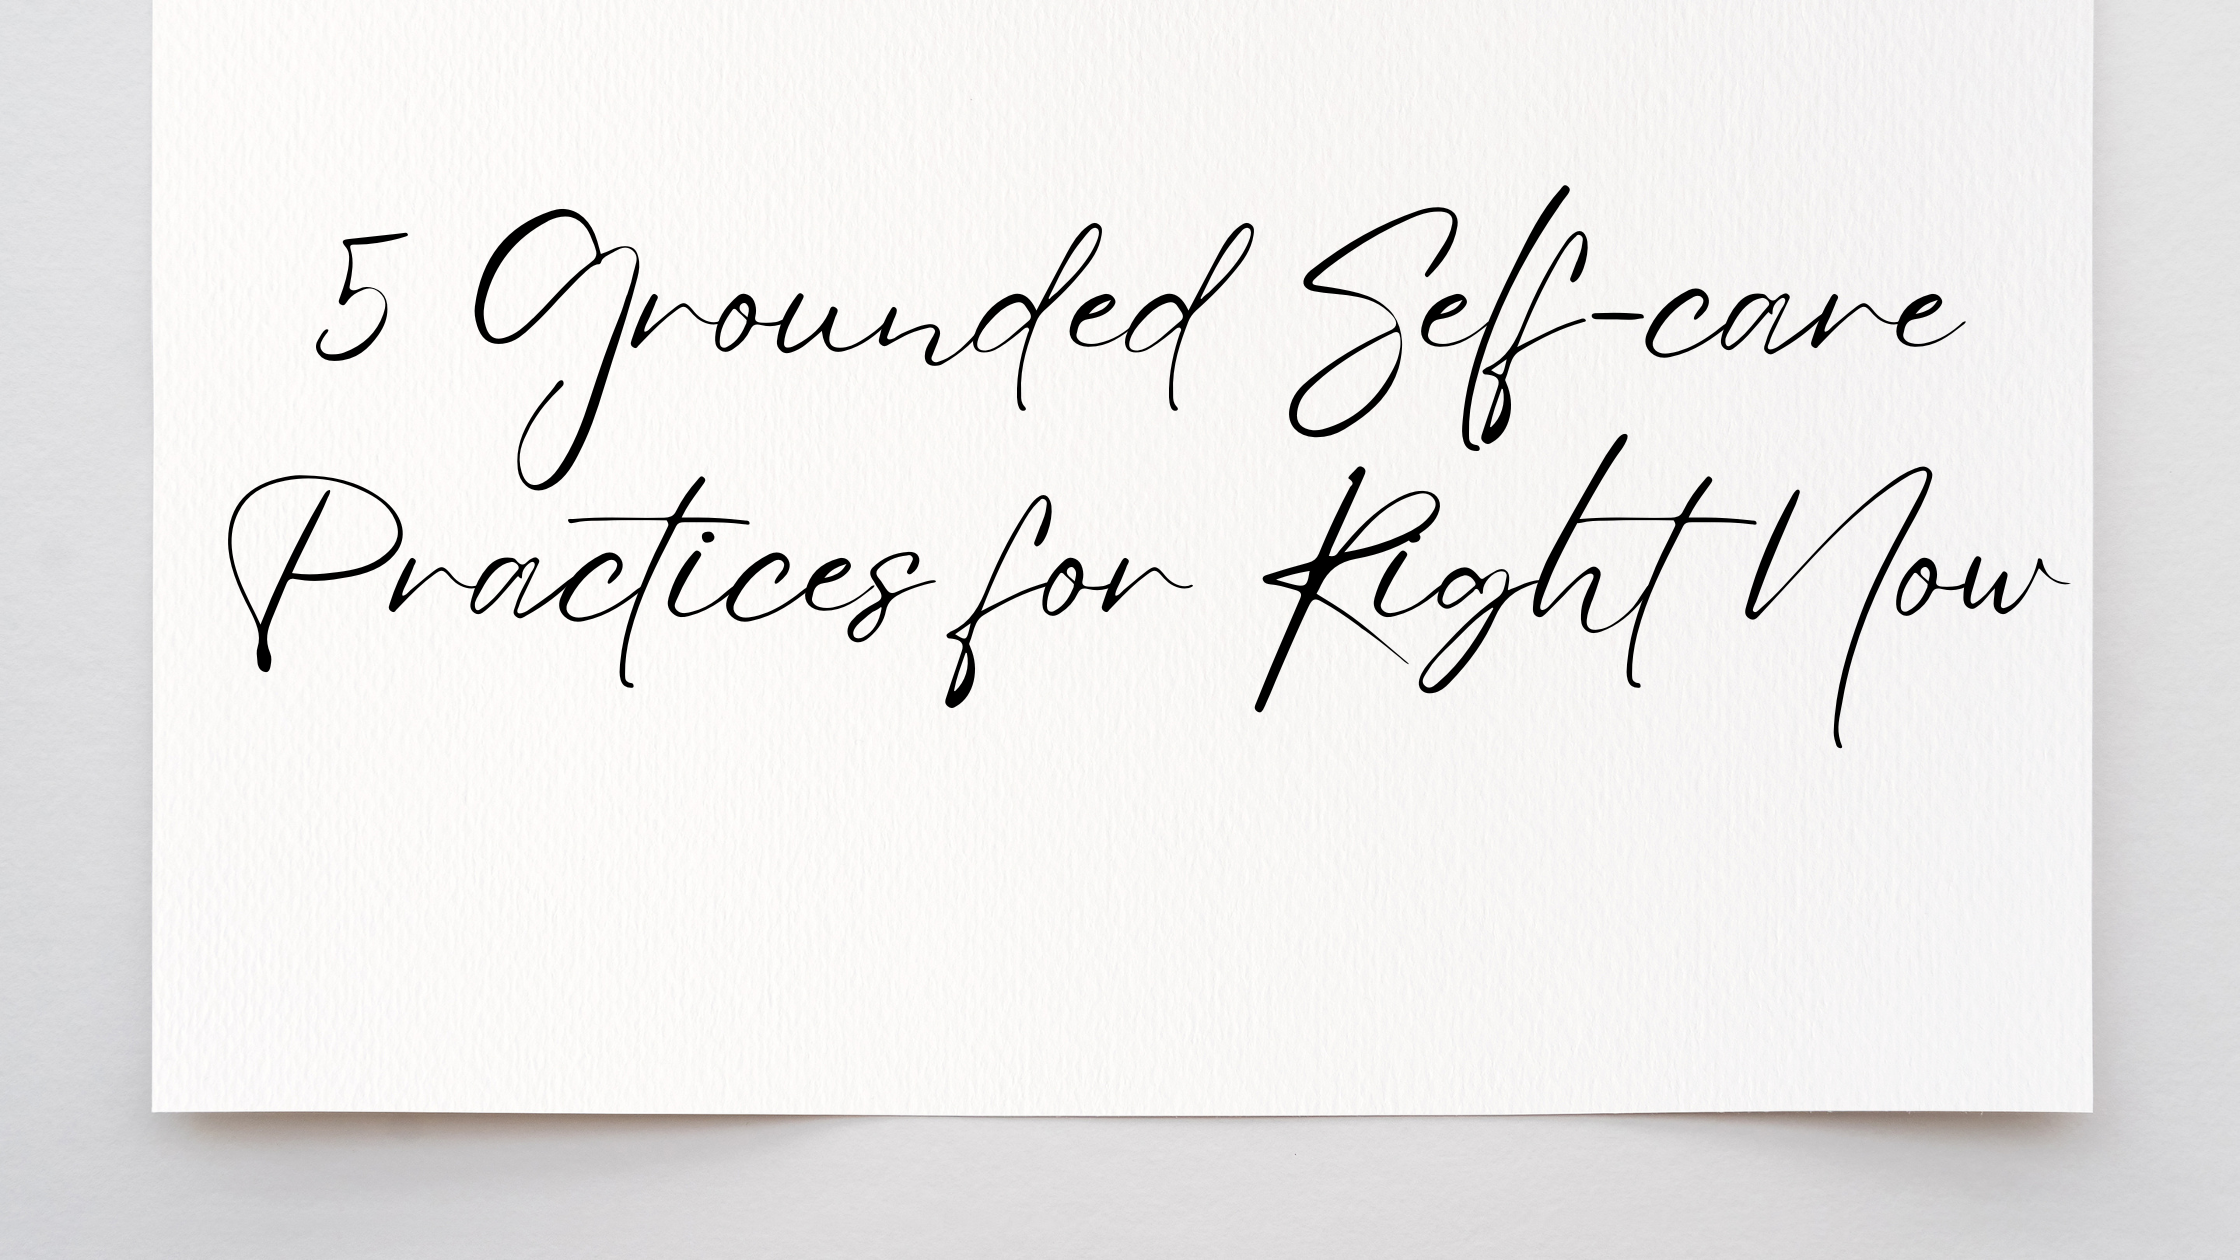 5 Grounded Self-care
Practices for Right Now